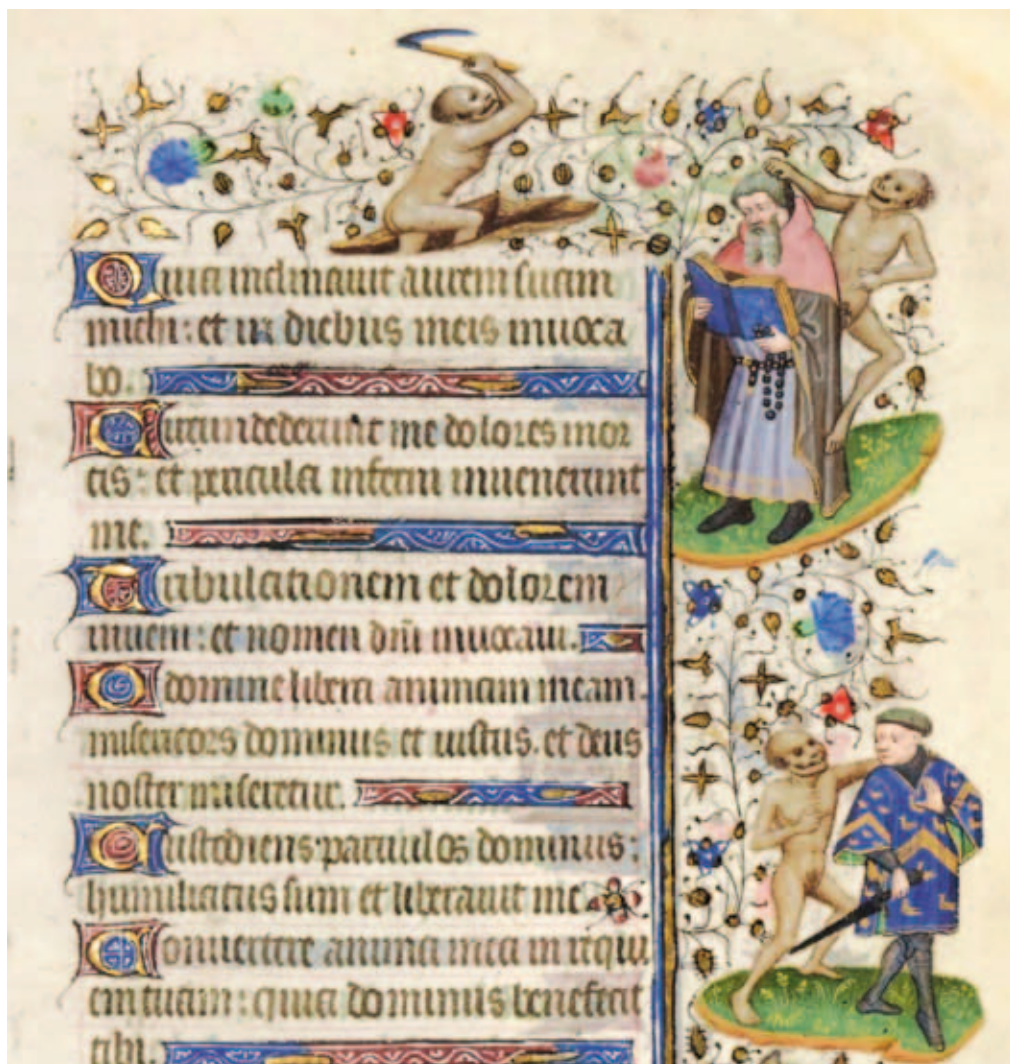 Quia inclinauit aurem suam
michi : et in diebus meis inuoca
bo.
Circundederunt me dolores mor
tis : et pericula inferni inuenerunt
me.
Tribulationem et dolorem
inueni : et nomen dñi inuocaui.
O domine libera animam meam.
misericors dominus et iustus. et deus
noster miseretur.
Custodiens paruulos dominus :
humiliatus sum et liberauit me
Conuertere anima mea in requi
em tuam : quia dominus benefecit
tibi.